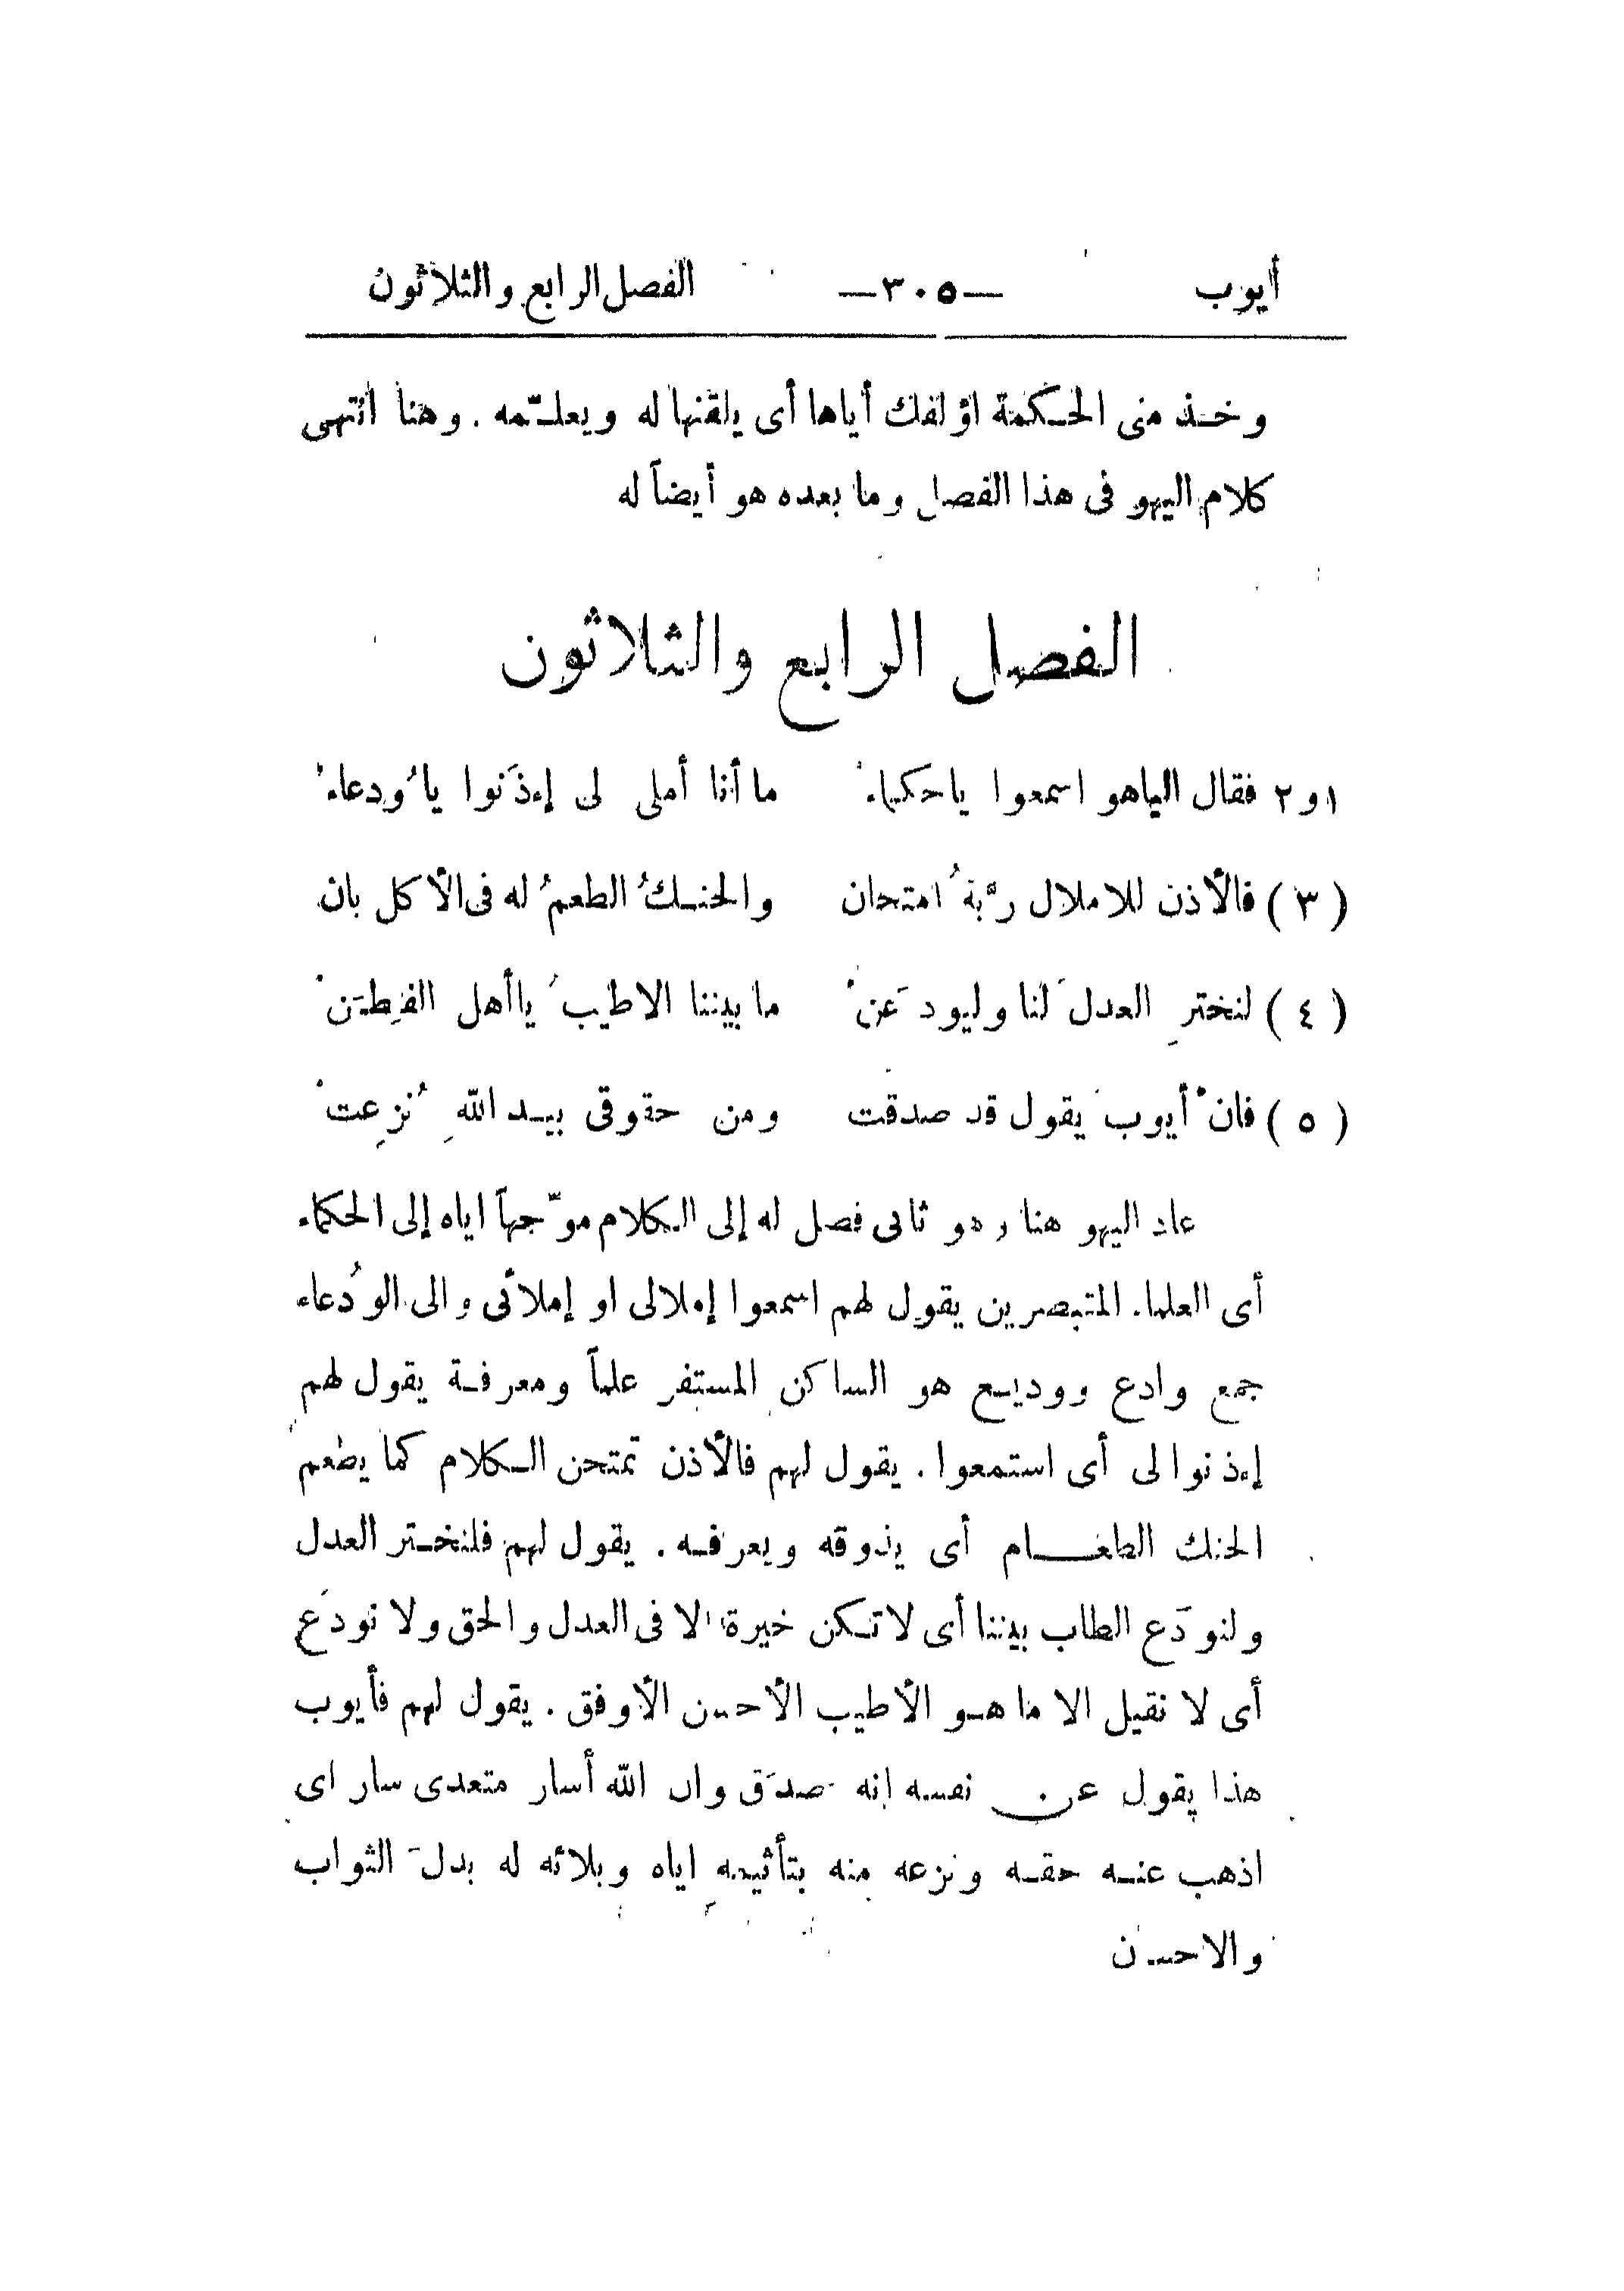 أيوب —٣٠٥— الفصل الرابع والثلاثون
وخذ منى الحكمة اؤلفك أياها أى يلقنها له ويعلّمه . وهنا انتهى
كلام اليهو فى هذا الفصل وما بعده هو أيضاً له
الفصل الرابع والثلاثون
١و٢ فقال الياهو اسمعوا ياحكماءْ ما أنا أملى لى إءذَنوا ياوُدعاءْ
(٣) فالأذن للاملال ربَّةُ امتحان والحنكُ الطعمُ له فى الأكل بان
(٤) لنخترِ العدلَ لنا وليودَعنْ ما بيننا الاطيبُ يا أهل الفِطَنْ
(٥) فانْ أيوب يقول قد صدقت ومن حقوقى بيد اللهِ نُزِعتْ
عاد اليهو هنا وهو ثانى فصل له إلى الكلام موّجهاً اياه إلى الحكماء
أى العلماء المتبصرين يقول لهم اسمعوا إملالى او إملائى والى الوُدعاء
جمع وادع ووديع هو الساكن المستفر علماً ومعرفة يقول لهم
إءذنوا لى أى استمعوا . يقول لهم فالأذن تمتحن الكلام كما يطعم
الحنك الطعام أى يذوقه ويعرفه . يقول لهم فلنختر العدل
ولنودَع الطاب بيننا أى لا تكن خيرة الا فى العدل والحق ولا نودَع
أى لا نقيل الا ما هو الأطيب الأحسن الأوفق . يقول لهم فأيوب
هذا يقول عن نفسه إنه صدَق وان الله أسار متعدى سار اى
اذهب عنه حقه ونزعه منه بتأثيمهِ اياه وبلائه له بدلَ الثواب
والاحسان